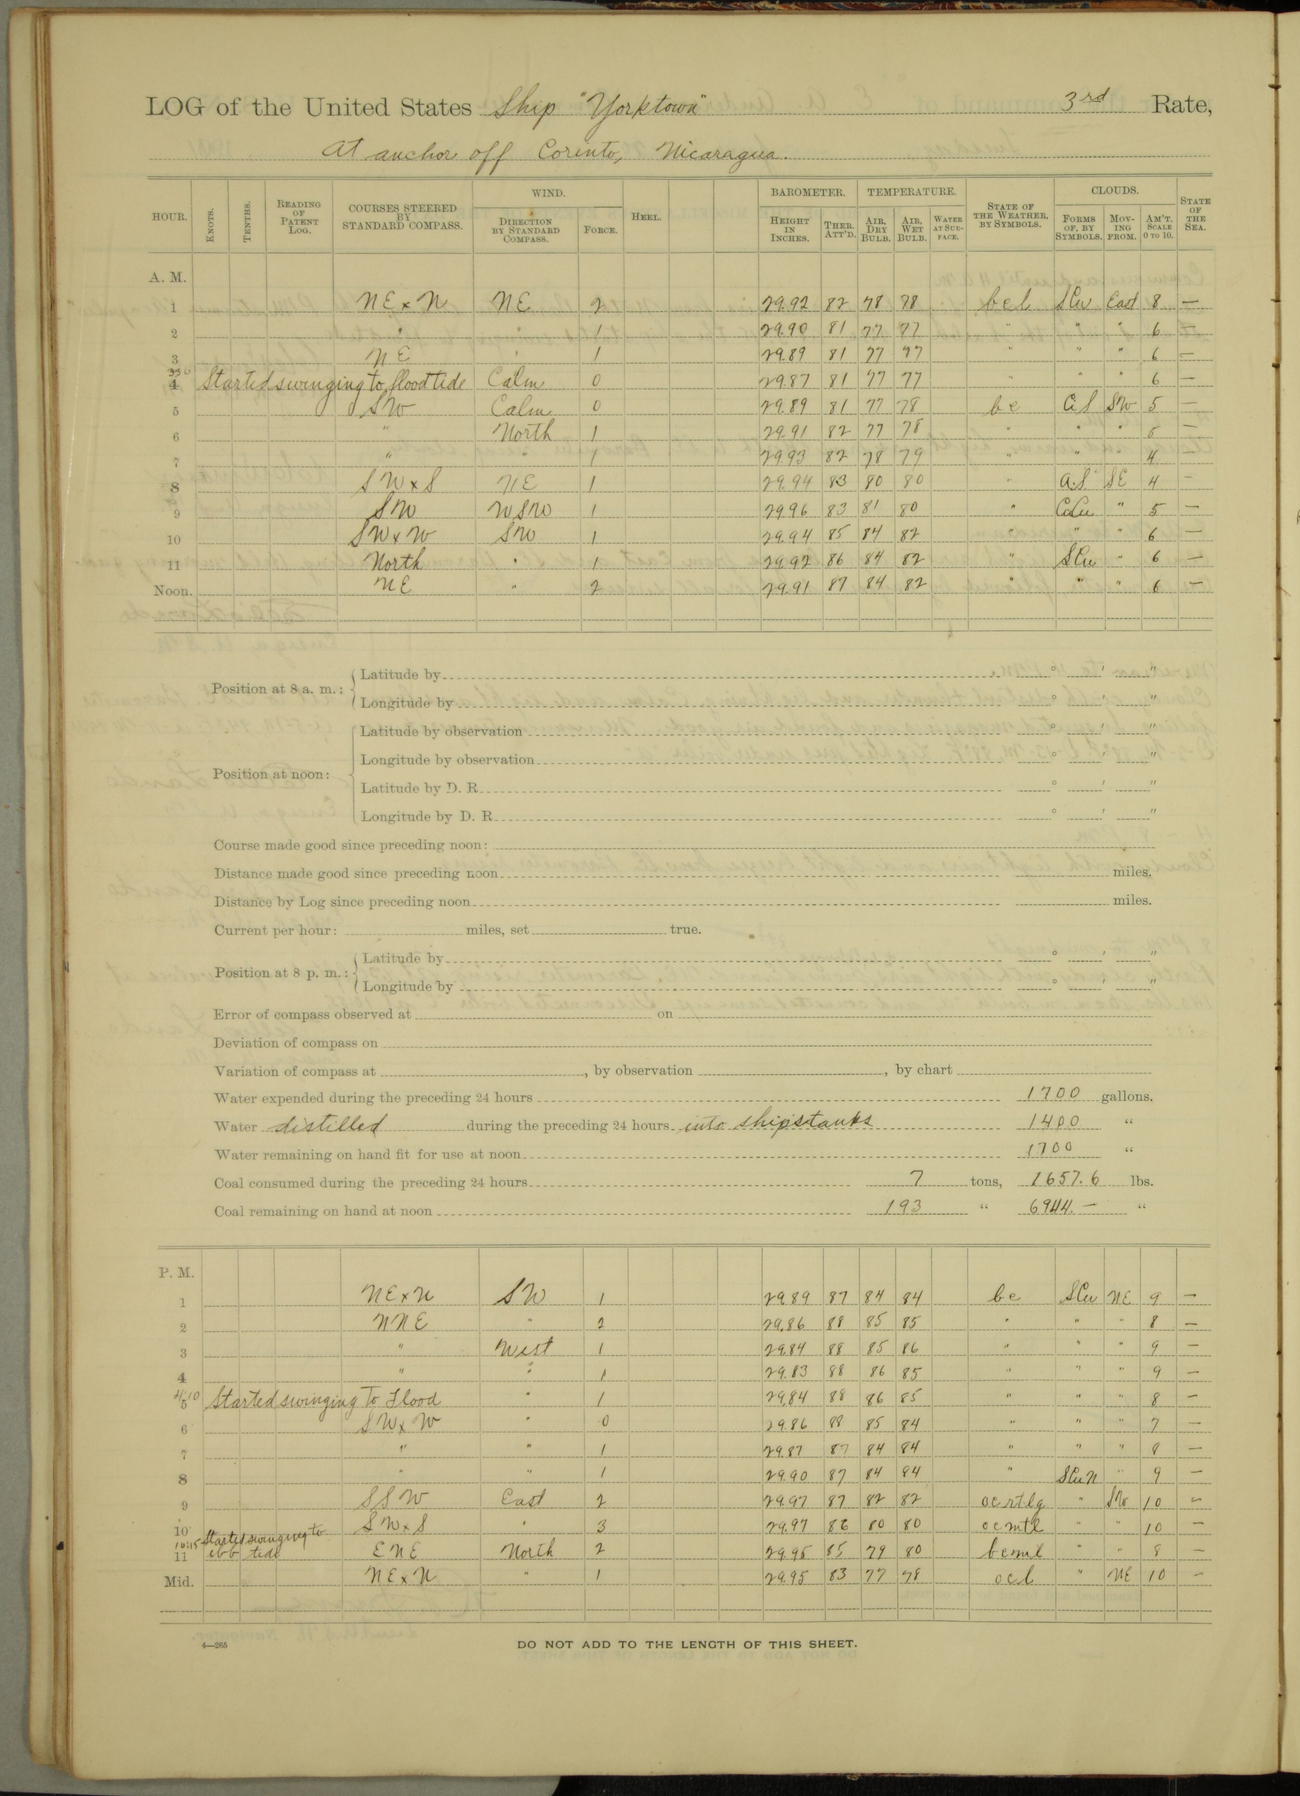 LOG of the United States Ship "Yorktown" 3rd Rate,
At anchor off Corinto, Nicaragua.
HOUR. KNOTS. TENTHS. READING OF PATENT LOG. COURSES STEERED BY STANDARD COMPASS. WIND. DIRECTION BY STANDARD COMPASS. FORCE. HEEL. BAROMETER. HEIGHT IN INCHES. THER. ATT'D. TEMPERATURE. AIR, DRY BULB. AIR, WET BULB. WATER AT SUR-FACE. STATE OF THE WEATHER, BY SYMBOLS. CLOUDS. FORMS OF, BY SYMBOLS. MOV-ING FROM. AM'T. SCALE 0 TO 10. STATE OF THE SEA.
A. M.
1 NE x N NE 2 29.92 82 78 78 bcl SCu East 8 —
2 " 1 29.90 81 77 77 " " " 6 —
3 NE " 1 29.89 81 77 77 " " " 6 —
4 Started swinging to flood tide Calm 0 29.87 81 77 77 " " " 6 —
5 SW Calm 0 29.89 81 77 78 bc CS SW 5 —
6 " North 1 29.91 82 77 78 " " " 5 —
7 " " 1 29.93 82 78 79 " " " 4 —
8 SW x S NE 1 29.94 83 80 80 " A.S SE 4 —
9 SW WSW 1 29.96 83 81 80 " CCu " 5 —
10 SW x W SW 1 29.94 85 84 82 " " " 6 —
11 North " 1 29.92 86 84 82 " SCu " 6 —
Noon. NE " 2 29.91 87 84 82 " " " 6 —
Position at 8 a. m.: Latitude by ° ′ ″
Longitude by ° ′ ″
Position at noon: Latitude by observation ° ′ ″
Longitude by observation ° ′ ″
Latitude by D. R. ° ′ ″
Longitude by D. R. ° ′ ″
Course made good since preceding noon:
Distance made good since preceding noon miles.
Distance by Log since preceding noon miles.
Current per hour: miles, set true.
Position at 8 p. m.: Latitude by ° ′ ″
Longitude by ° ′ ″
Error of compass observed at on
Deviation of compass on
Variation of compass at , by observation , by chart
Water expended during the preceding 24 hours 1700 gallons.
Water distilled during the preceding 24 hours into ship's tanks 1400 "
Water remaining on hand fit for use at noon 1700 "
Coal consumed during the preceding 24 hours 7 tons, 1657.6 lbs.
Coal remaining on hand at noon 193 " 6944. — "
P. M.
1 NE x N SW 1 29.89 87 84 84 bc SCu NE 9 —
2 NNE " 2 29.86 88 85 85 " " " 8 —
3 " West 1 29.84 88 85 86 " " " 9 —
4 " " 1 29.83 88 86 85 " " " 9 —
4.10
5 Started swinging to Flood " 1 29.84 88 86 85 " " " 8 —
6 SW x W " 0 29.86 88 85 84 " " " 7 —
7 " " 1 29.87 87 84 84 " " " 8 —
8 " " 1 29.90 87 84 84 " SCuN " 9 —
9 SSW East 2 29.97 87 82 82 ocrtlq " SW 10 —
10 SW x S " 3 29.97 86 80 80 ocmtl " " 10 —
10:15 Started swinging to
11 ebb tide ENE North 2 29.95 85 79 80 bcml " " 8 —
Mid. NE x N " 1 29.95 83 77 78 ocl " NE 10 —
4—265 DO NOT ADD TO THE LENGTH OF THIS SHEET.